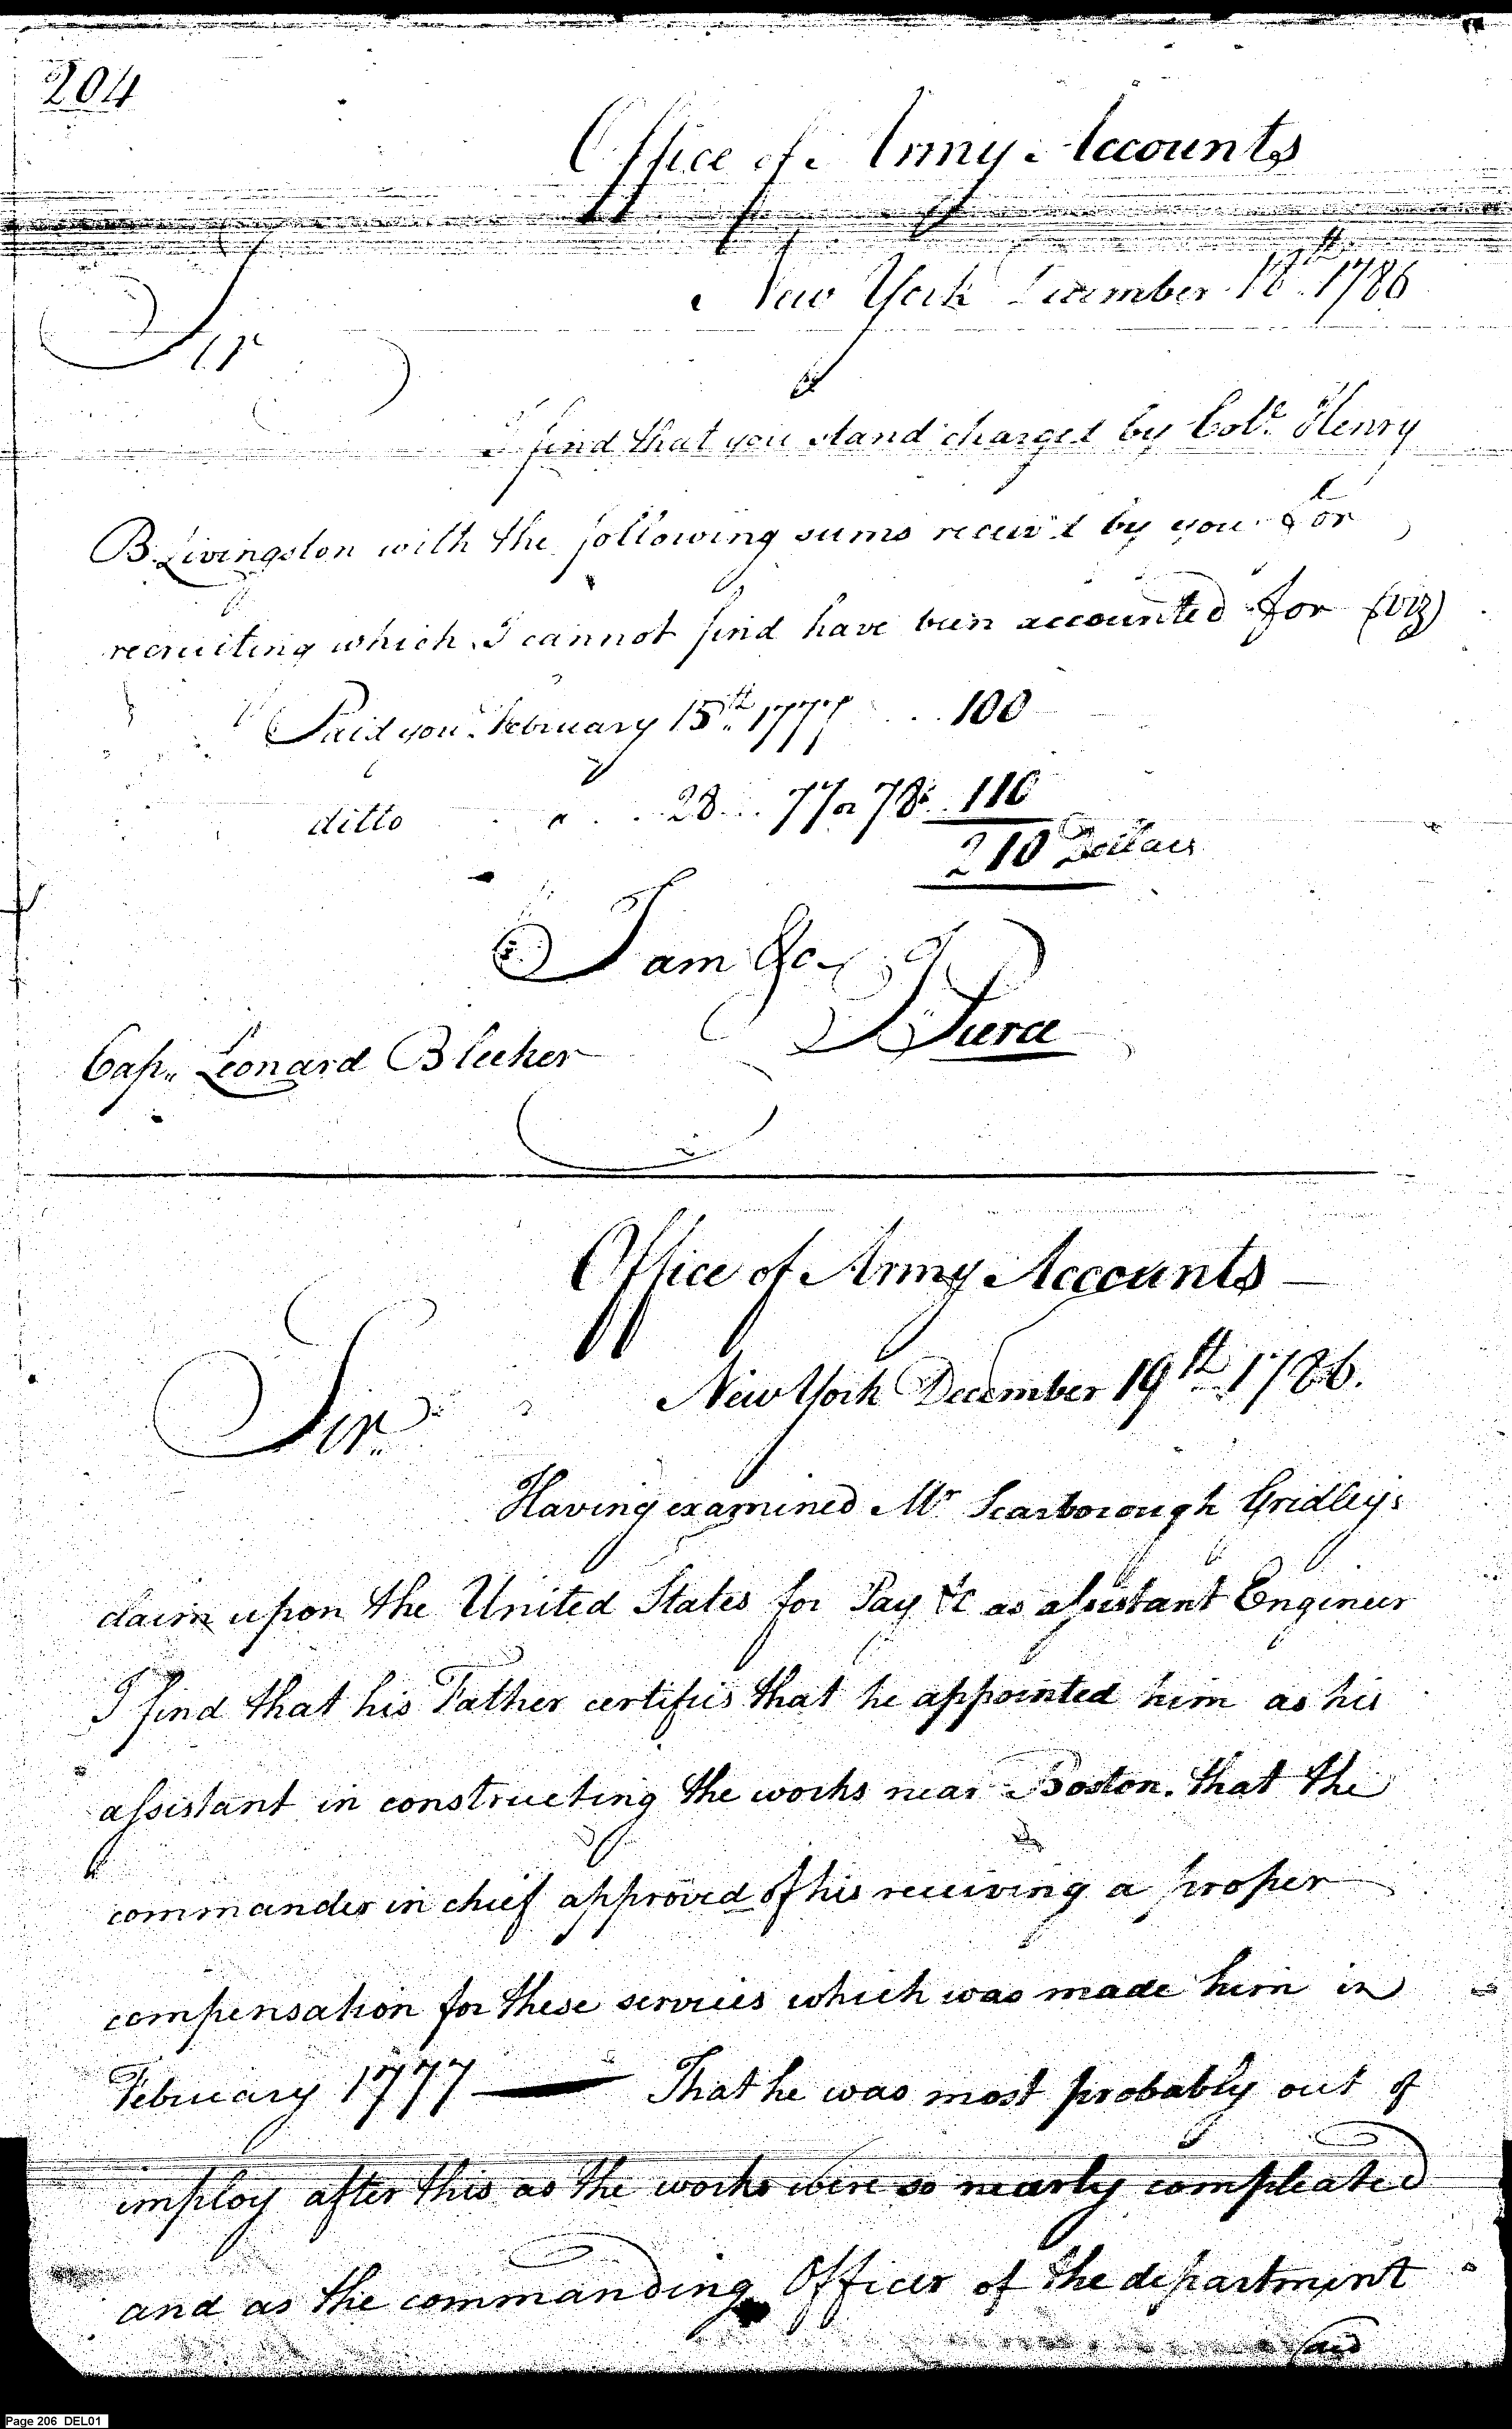 204
Office of Army Accounts
New York December 18th 1786
Sir
I find that you stand charged by Colo. Henry
B. Livingston with the following sums receiv'd by you for
recruiting which I cannot find have been accounted for (viz)
Paid you February 15th 1777 100
ditto 28 77 or 78 110
210 Dollars
I am &c
J Pierce
Cap. Leonard Bleeker
Office of Army Accounts
New York December 19th 1786.
Sir
Having examined Mr Scarborough Gridley's
claim upon the United States for Pay &c as assistant Engineer
I find that his Father certifies that he appointed him as his
assistant in constructing the works near Boston. that the
commander in chief approved of his receiving a proper
compensation for these services which was made him in
February 1777 — That he was most probably out of
imploy after this as the works were so nearly compleated
and as the commanding Officer of the department
said
Page 206 DEL01